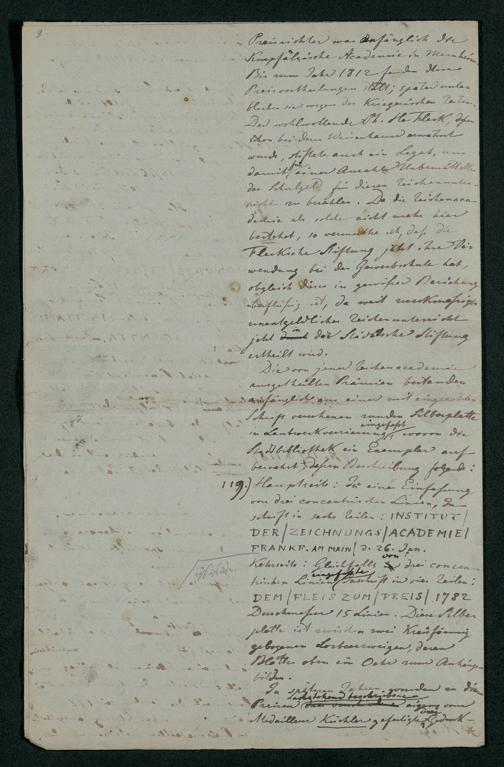 9
Preisrichter war anfänglich die
Kurpfälzische Academie in Manheim.
Bis zum Jahr 1812 fanden diese
Preisvertheilungen statt; später unter-
blieben sie wegen der Kriegerischen Zeiten.
Der wohlwollende Ph. Fleck, dessen
schon bei dem Waisenhause erwähnt
wurde, stiftete auch ein Legat, um
damit für eine Anzahl
das Schulgeld für diesen Zeichenunter-
richt zu bezahlen. Da die Zeichenaca-
demie als solche nicht mehr hier
bestehet, so vermuthe ich, daß die
Flecksche Stiftung jetzt ihre Ver-
wendung bei der Gewerbschule hat,
obgleich dieses in gewisser Beziehung
ist, da weit
unentgeldlicher Zeichenunterricht
jetzt die Städelsche Stiftung
ertheilt wird.
Die von jener Zeichenacademie
ausgetheilten Prämien bestanden
anfänglich aus einer mit eingravirter
Schrift versehenen runden Silberplatte
in Laubwerkverzierung eingefaßt, wovon die
Stadtbibliothek ein Exemplar auf-
bewahrt, dessen Beschreibung folgende:
119.) Hauptseite: In einer Einfassung
von drei concentrischen Linien, In-
schrift in sechs Zeilen: INSTITUT/
DER / ZEICHNUNGS / ACADEMIE /
FRANKF. AM MAIN / D. 26. Jan.
Kehrseite: Gleichfalls von drei concen-
trischen Linien eingefaßte Inschrift in vier Zeilen:
DEM / FLEIS ZUM / PREIS / 1782
Durchmesser 15 Linien. Diese Silber-
platte ist zwischen zwei Kreisförmig
gebogenen Lorbeerzweigen, deren
Blätter oben ein Oehr zum Anhängen
bilden.
In spätern Jahren wurden zu diesen
nachstehend beschriebene
Preisen eigens vom
Medailleur Küchler gefertigte drei Denk-